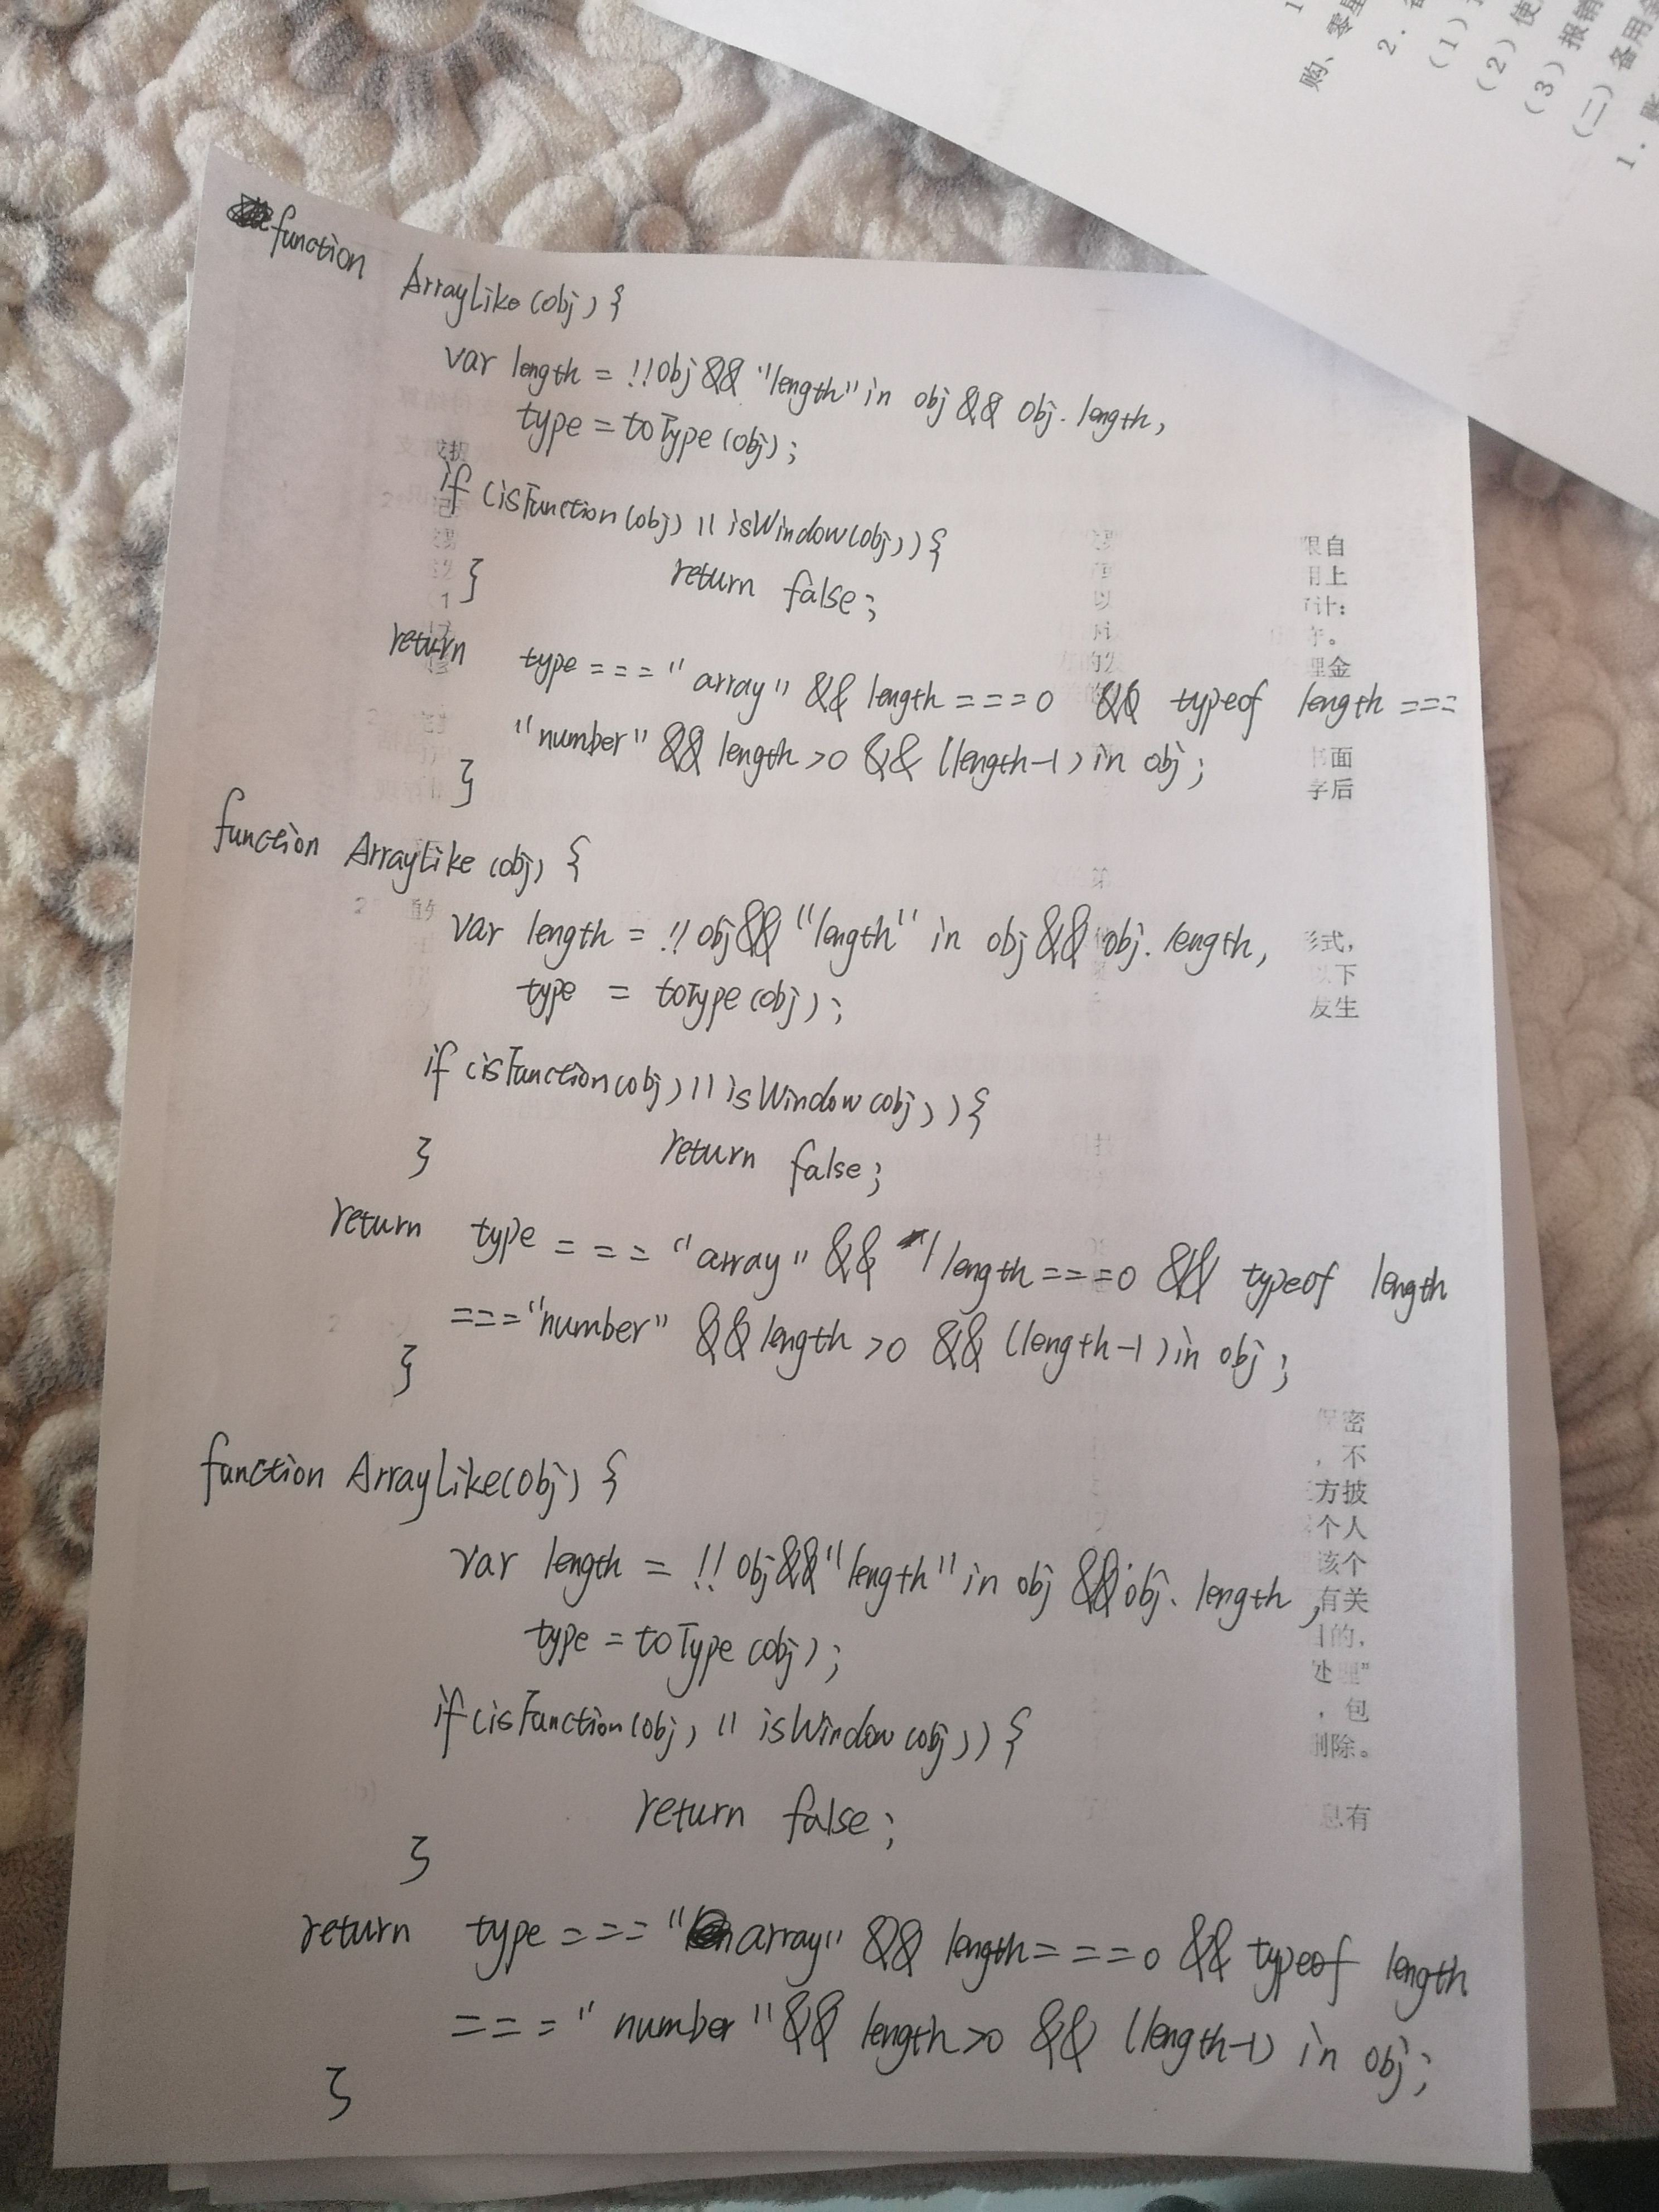 购、零星
2.
(1)
(2)使
(3)报销
(二)备用金
1.账
function ArrayLike(obj) {
var length = !!obj && "length" in obj && obj.length,
type = toType(obj);
if (isFunction(obj) || isWindow(obj)) {
} return false;
return type === "array" && length === 0 && typeof length ===
"number" && length > 0 && (length-1) in obj;
}
function ArrayLike (obj) {
var length = !!obj && "length" in obj && obj.length,
type = toType(obj);
if (isFunction(obj) || isWindow(obj)) {
} return false;
return type === "array" && length === 0 && typeof length
=== "number" && length > 0 && (length-1) in obj;
}
function ArrayLike(obj) {
var length = !!obj && "length" in obj && obj.length,
type = toType(obj);
if (isFunction(obj) || isWindow(obj)) {
return false;
}
return type === "array" && length === 0 && typeof length
=== "number" && length > 0 && (length-1) in obj;
}
限自
用上
计:
理金
书面
字后
形式,
以下
发生
保密
,不
方披
个人
该个
有关
目的,
处理"
,包
删除。
息有